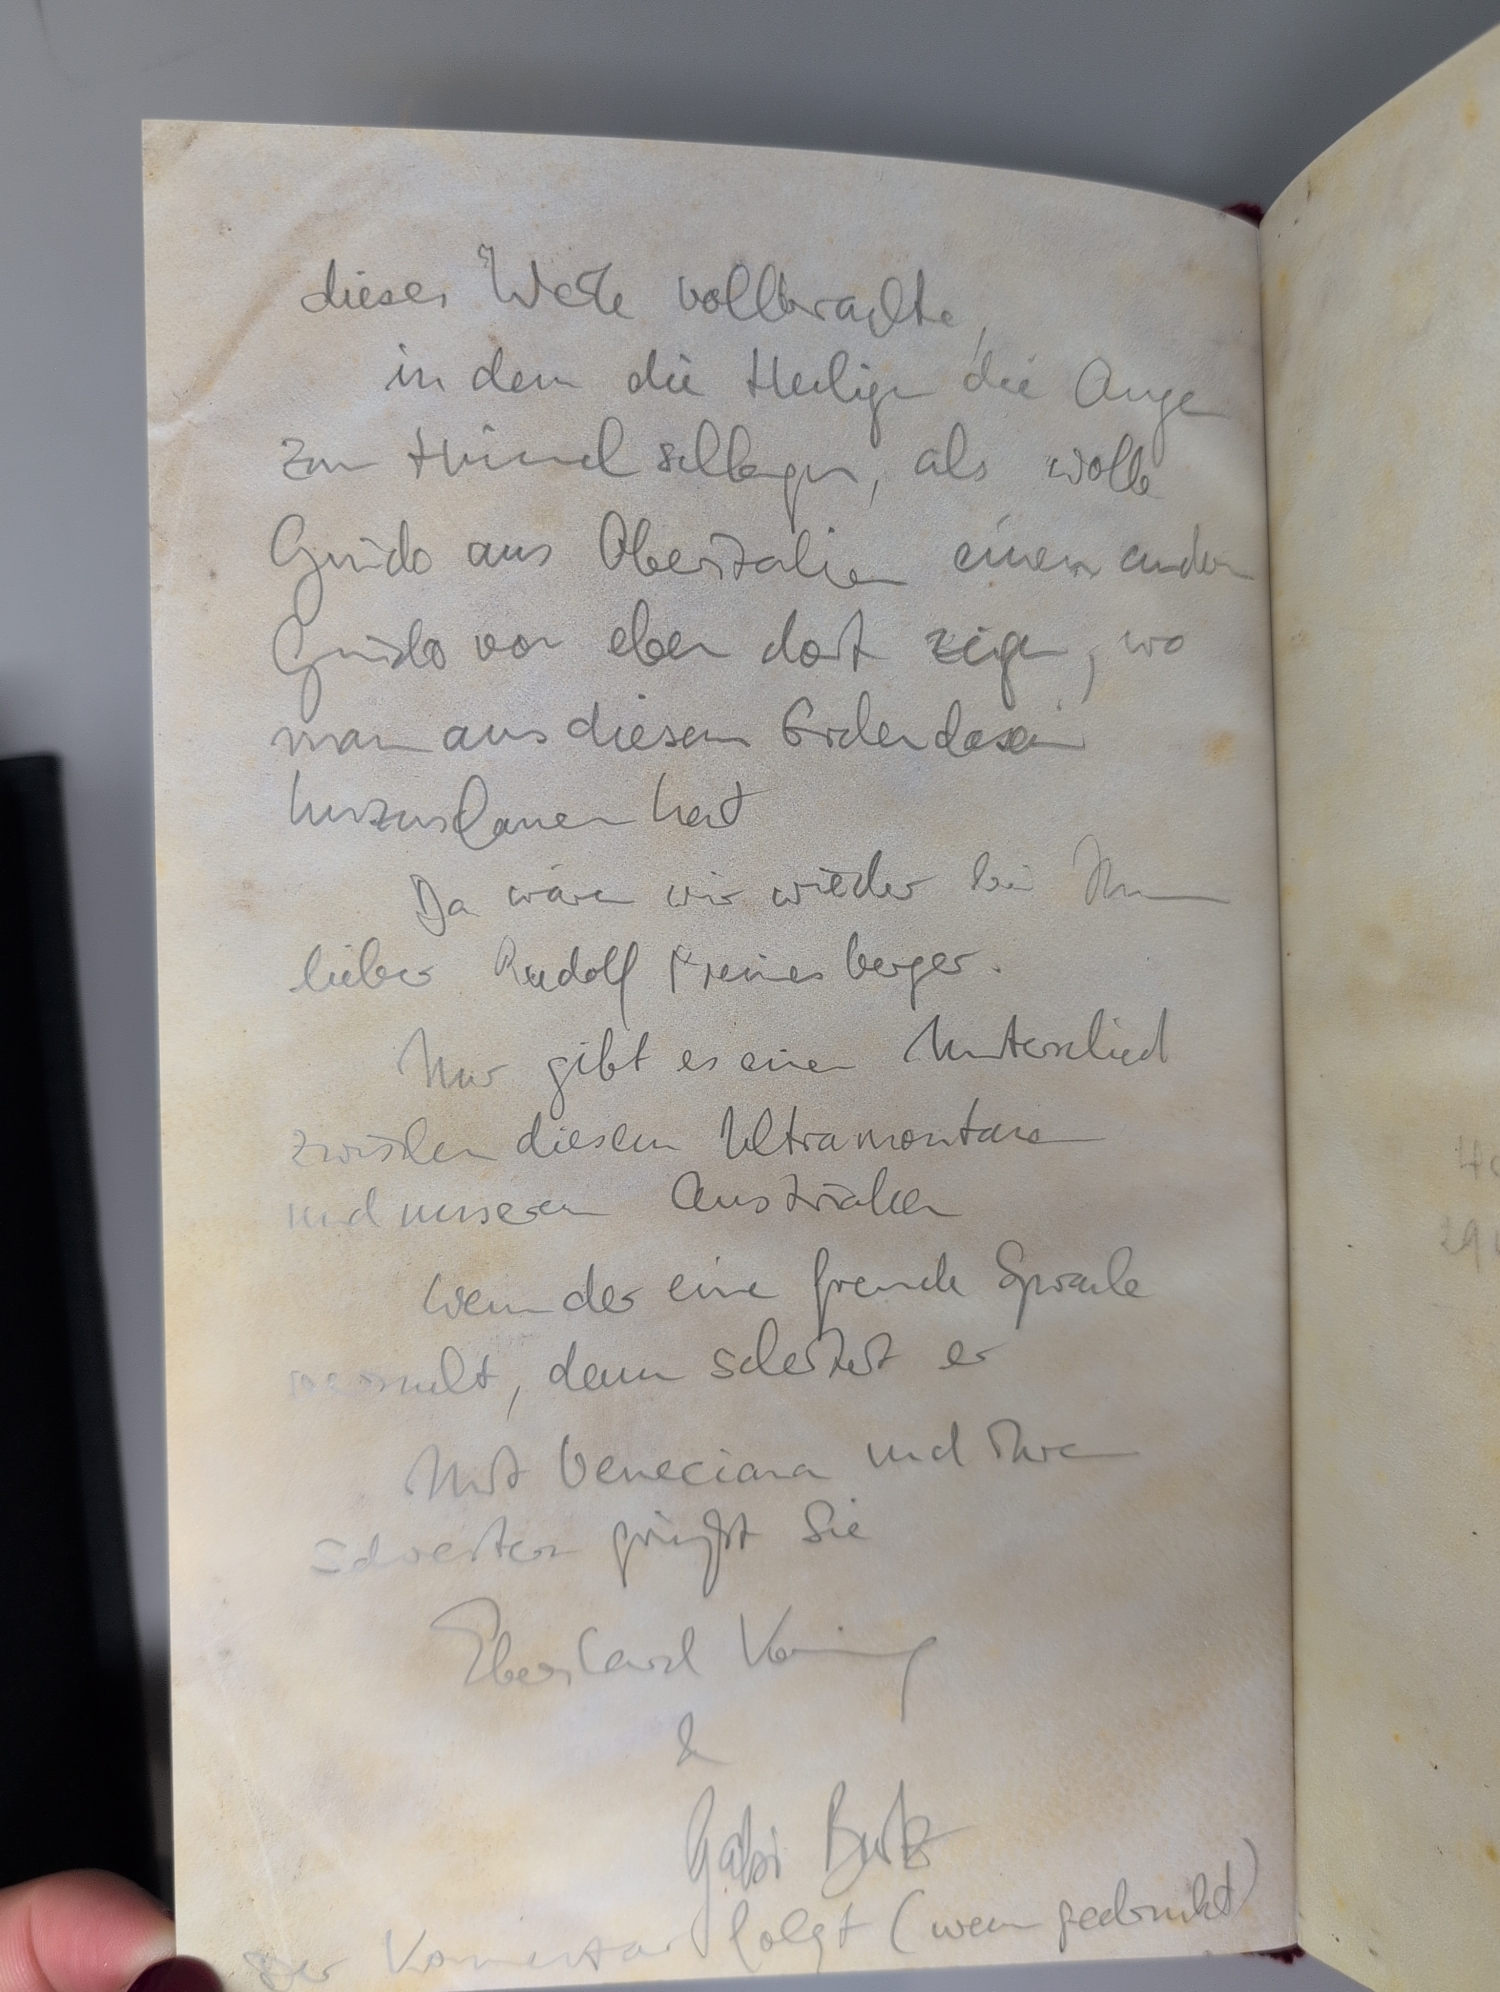 dieses Werk vollbrachte,
in dem die Heiligen die Augen
zum Himmel schlagen, als wolle
Guido aus Oberitalien einem andern
Guido von eben dort zeigen, wo
man aus diesem Erdendasein
hinzuschauen hat
Da wären wir wieder bei Ihnen
lieber Rudolf
Nur gibt es einen Unterschied
zwischen diesem Ultramontanen
und unserem
Wenn der eine fremde Sprache
dann scheitert er
Mit Veneciana und Ihren
grüßt Sie
Eberhard König
&
Gabi Bartz
Der Kommentar folgt (wenn gedruckt)